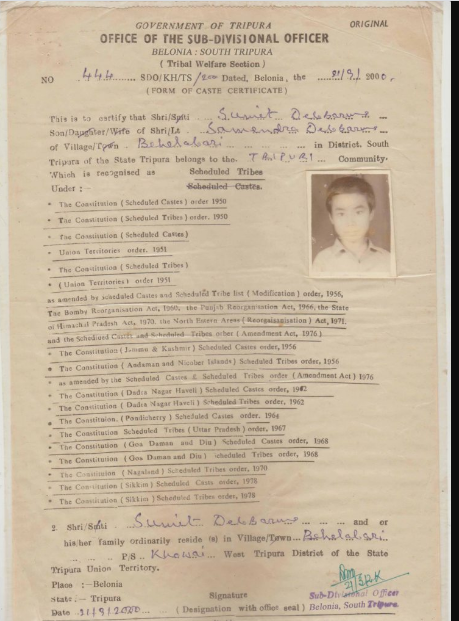 GOVERNMENT OF TRIPURA
ORIGINAL
OFFICE OF THE SUB-DIVISIONAL OFFICER
BELONIA : SOUTH TRIPURA
( Tribal Welfare Section )
NO 444 SDO/KH/TS /200 Dated, Belonia, the 21/9/ 2000.
( FORM OF CASTE CERTIFICATE )
This is to certify that Shri/Smti Sumit Debbarma
Son/Daughter/Wife of Shri/Lt Samendra Debbarma
of Village/Town Behalabari in District. South
Tripura of the State Tripura belongs to the. TRIPURI Community.
Which is recognised as Scheduled Tribes
Under :- Scheduled Castes.
* The Constitution ( Scheduled Castes ) order 1950
* The Constitution ( Scheduled Tribes ) order. 1950
* The Constitution ( Scheduled Castes )
* Union Territories order. 1951
* The Constitution ( Scheduled Tribes )
* ( Union Territories ) order 1951
as amended by scheduled Castes and Scheduled Tribe list ( Modification ) order, 1956,
The Bomby Reorganisation Act, 1960, the Punjab Reorganisation Act, 1966, the State
of Himachal Pradesh Act, 1970, the North Estern Areas ( Reorgaisangisation ) Act, 1971.
and the Schedued Castes and Scheduled Tribes orber ( Amendment Act, 1976. )
* The Constitution ( Jammu & Kashmir ) Scheduled Castes order, 1956
* The Constitution ( Andaman and Nicober Islands ) Scheduled Tribes order, 1956
* as amended by the Scheduled Castes & Scheduled Tribes order ( Amendment Act ) 1976
* The Constitution ( Dadra Nagar Haveli ) Scheduled Castes order, 1962
* The Constitution ( Dadra Nagar Haveli ) Scheduled Tribes order, 1962
* The Constitution. ( Pondicherry ) Scheduled Castes order. 1964
* The Constitution Scheduled Tribes ( Uttar Pradesh ) order, 1967
* The Constitution ( Goa Daman and Diu ) Scheduled Castes order, 1968
* The Constitution ( Goa Daman and Diu ) Scheduled Tribes order, 1968
* The Constitution ( Nagaland ) Scheduled Tribes order, 1970
* The Constitution ( Sikkim ) Scheduled Caste order, 1978
* The Constitution ( Sikkim ) Scheduled Tribes order, 1978
2. Shri/Smti Sumit Debbarma and or
his/her family ordinarily reside (s) in Village/Town Behalabari
P/S Khowai West Tripura District of the State
Tripura Union Territory.
Place :-Belonia
State :- Tripura Signature Sub-Divisional Officer
Date 21/9/2000 ( Designation with office seal ) Belonia, South Tripura.